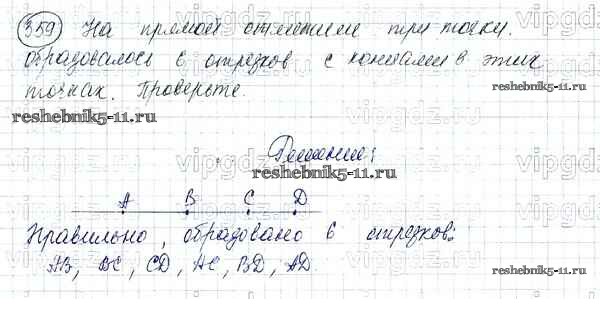 359 На прямой отметили три точки.
Образовалось 6 отрезков с концами в этих
точках. Проверьте.
reshebnik5-11.ru
reshebnik5-11.ru
Решение:
reshebnik5-11.ru
A B C D
Правильно, образовано 6 отрезков:
AB, BC, CD, AC, BD, AD.
reshebnik5-11.ru